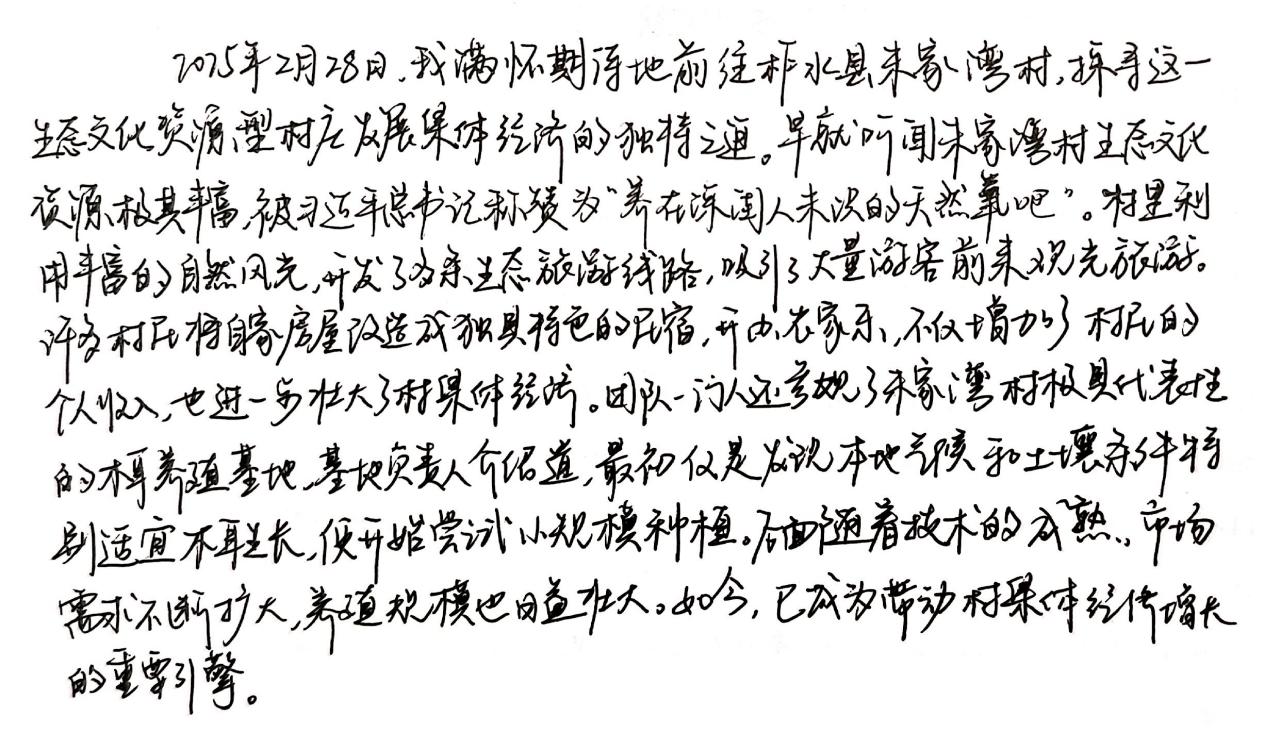 2025年2月28日，我满怀期待地前往柞水县朱家湾村，探寻这一
生态文化资源型村庄发展集体经济的独特之道。早就听闻朱家湾村生态文化
资源极其丰富，被习近平总书记称赞为“养在深闺人未识的天然氧吧”。村里利
用丰富的自然风光，开发了多条生态旅游线路，吸引了大量游客前来观光旅游。
许多村民将自家房屋改造成独具特色的民宿，开办农家乐，不仅增加了村民的
个人收入，也进一步壮大了村集体经济。团队一行人还参观了朱家湾村极具代表性
的木耳养殖基地，基地负责人介绍道，最初仅是发现本地气候和土壤条件特
别适宜木耳生长，便开始尝试小规模种植。后面随着技术的成熟，市场
需求不断扩大，养殖规模也日益壮大。如今，已成为带动村集体经济增长
的重要引擎。